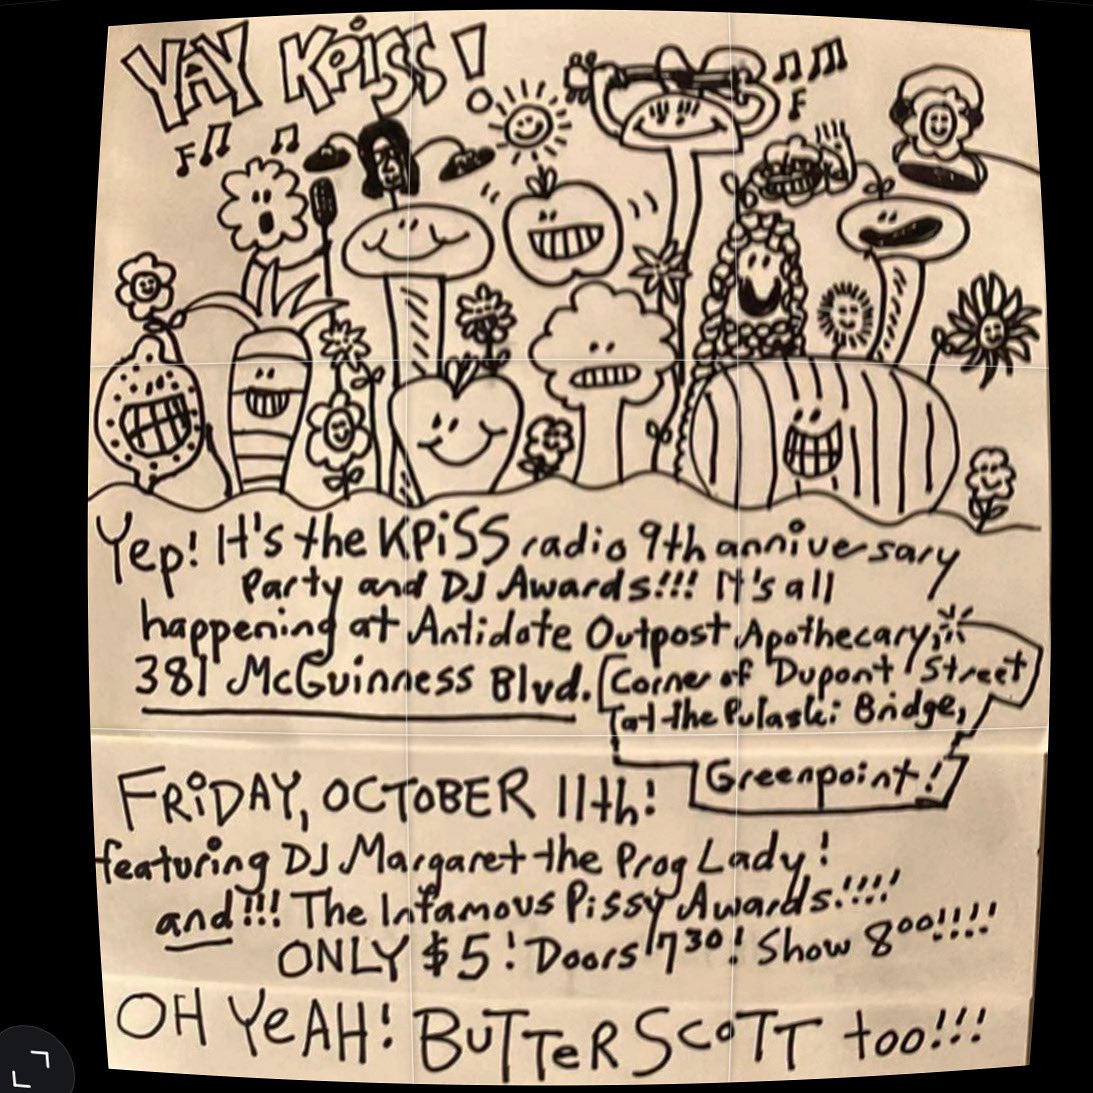 YAY KPiSS!
Yep! It's the KPiSS radio 9th anniversary
Party and DJ Awards!!! It's all
happening at Antidote Outpost Apothecary,
381 McGuinness Blvd. (Corner of Dupont Street
at the Pulaski Bridge,
Greenpoint!
FRiDAY, OCTOBER 11th!
featuring DJ Margaret the Prog Lady!
and!!! The Infamous Pissy Awards.!!!!
ONLY $5! Doors 7³⁰! Show 8⁰⁰!!!!
OH YeAH! BuTTeR ScoTT too!!!